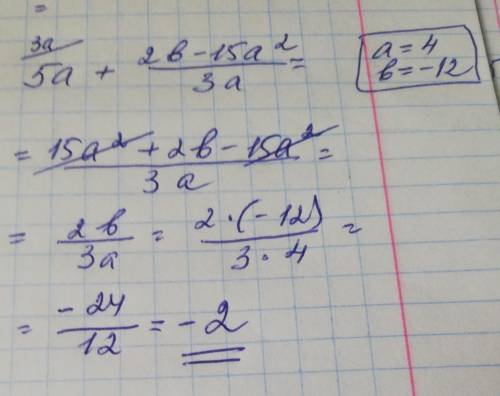 =
3a/ 5a + (2b - 15a²)/(3a) =
a = 4
b = -12
= (15a² + 2b - 15a²)/(3a) =
= (2b)/(3a) = (2·(-12))/(3·4) =
= (-24)/(12) = -2